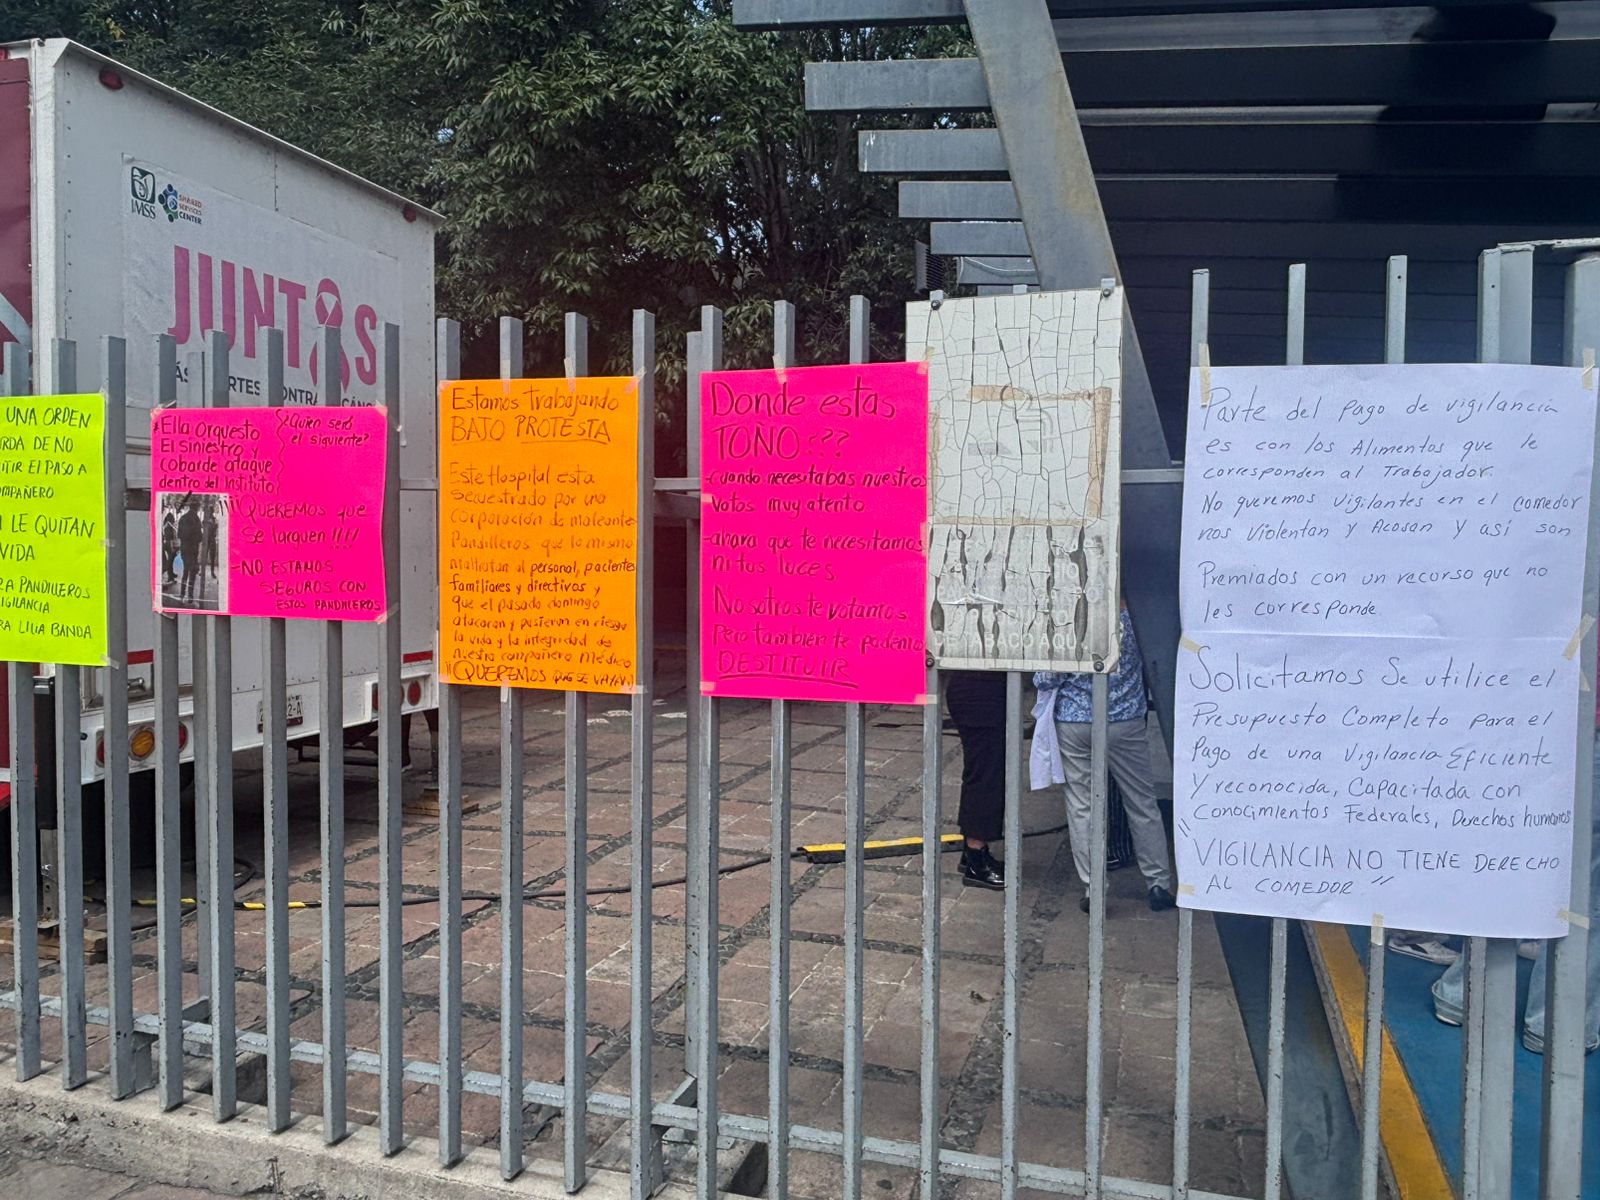 IMSS
SHARED
SERVICES
CENTER
JUNTOS
UNA ORDEN
DE NO
EL PASO A
LE QUITAN
VIDA
PANDILLEROS
LILIA BANDA
*Ella orquesto
El Siniestro y
cobarde ataque
dentro del Instituto
¿Quien será
el siguiente?
¡¡¡¡QUEREMOS que
Se larguen !!!!
-NO ESTAMOS
SEGUROS CON
ESTOS PANDILLEROS
Estamos trabajando
BAJO PROTESTA
Este Hospital esta
Secuestrado por una
corporación de maleantes
Pandilleros que lo mismo
maltratan al personal, pacientes
familiares y directivos y
que el pasado domingo
atacaron y pusieron en riesgo
la vida y la integridad de
nuestro compañero Médico
¡¡QUEREMOS QUE SE VAYAN
Donde estas
TOÑO???
-Cuando necesitabas nuestros
Votos muy atento
-ahora que te necesitamos
ni tus luces
Nosotros te votamos
Pero también te podemos
DESTITUIR
Parte del pago de vigilancia
es con los Alimentos que le
corresponden al Trabajador.
No queremos vigilantes en el comedor
nos Violentan y Acosan y así son
Premiados con un recorso que no
les corresponde.
Solicitamos Se utilice el
Presupuesto Completo para el
Pago de una Vigilancia Eficiente
y reconocida, Capacitada con
Conocimientos Federales, Derechos humanos
"VIGILANCIA NO TIENE DERECHO
AL COMEDOR"